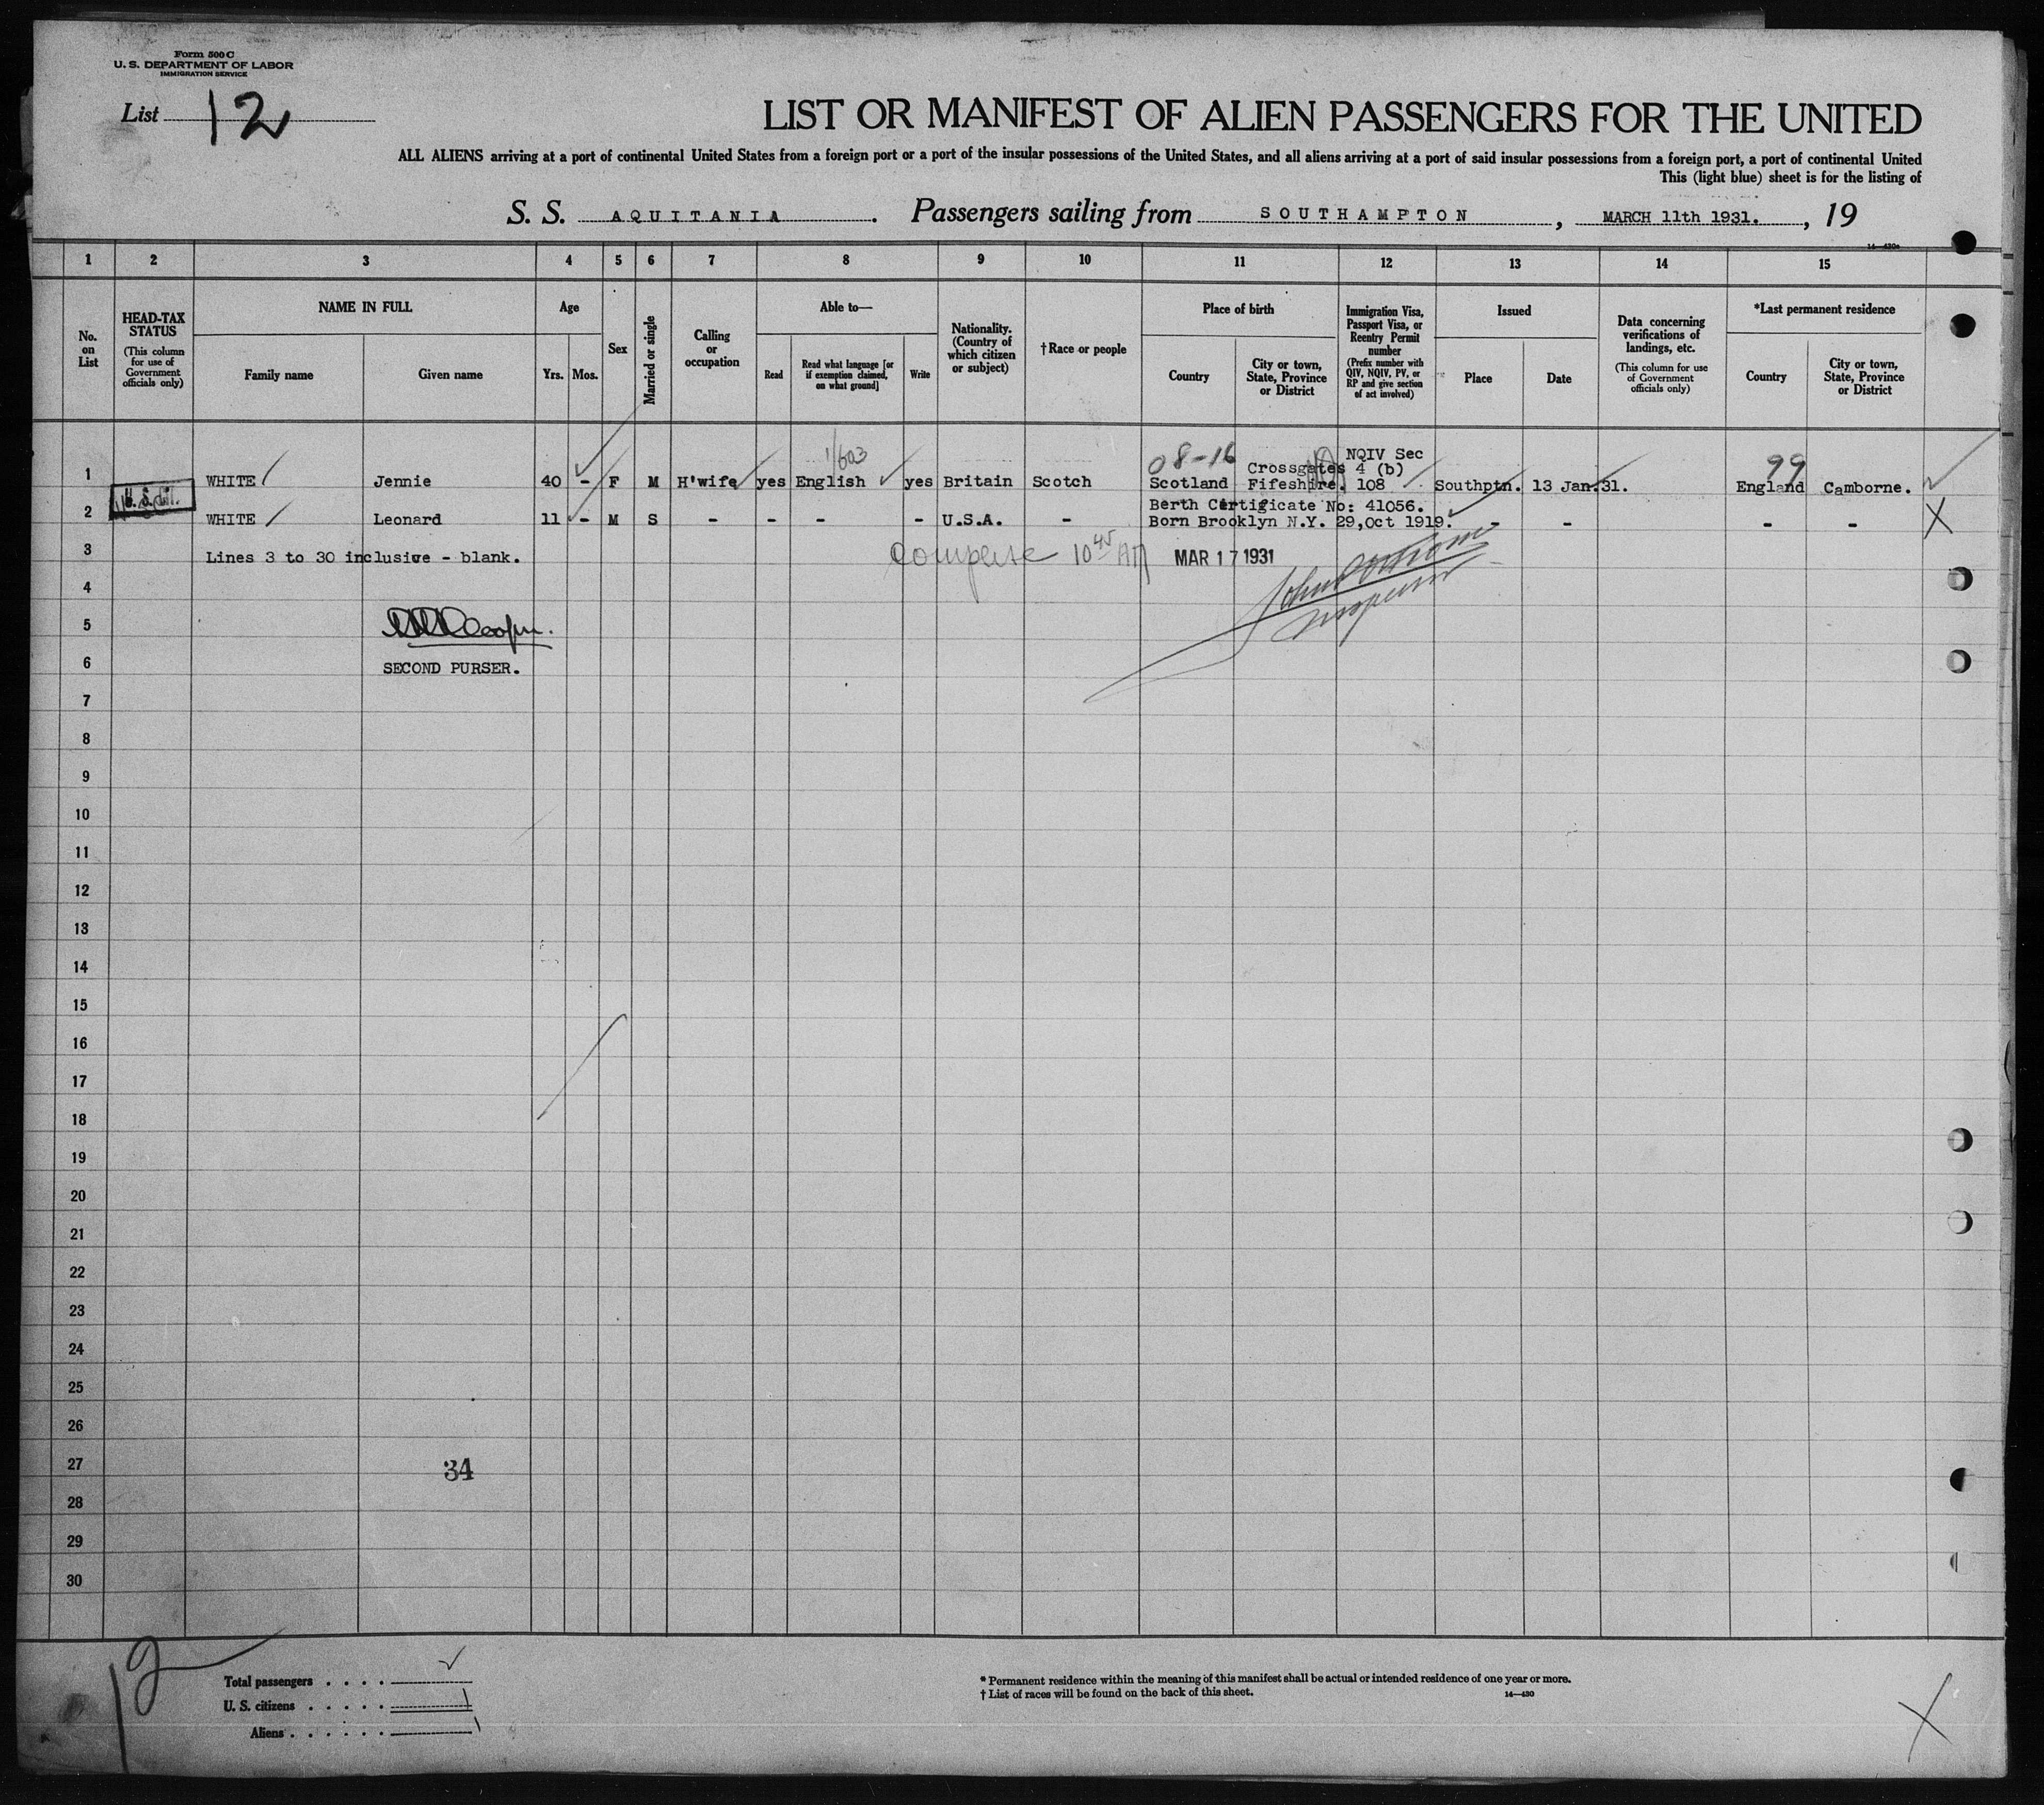 Form 500 C
U. S. DEPARTMENT OF LABOR
IMMIGRATION SERVICE
List 12
LIST OR MANIFEST OF ALIEN PASSENGERS FOR THE UNITED
ALL ALIENS arriving at a port of continental United States from a foreign port or a port of the insular possessions of the United States, and all aliens arriving at a port of said insular possessions from a foreign port, a port of continental United
This (light blue) sheet is for the listing of
S. S. AQUITANIA. Passengers sailing from SOUTHAMPTON, MARCH 11th 1931., 19
14—430a
1 2 3 4 5 6 7 8 9 10 11 12 13 14 15
No. on List
HEAD-TAX STATUS
(This column for use of Government officials only)
NAME IN FULL
Family name
Given name
Age
Yrs. Mos.
Sex
Married or single
Calling or occupation
Able to—
Read
Read what language [or if exemption claimed, on what ground]
Write
Nationality. (Country of which citizen or subject)
†Race or people
Place of birth
Country
City or town, State, Province or District
Immigration Visa, Passport Visa, or Reentry Permit number
(Prefix number with QIV, NQIV, PV, or RP and give section of act involved)
Issued
Place
Date
Data concerning verifications of landings, etc.
(This column for use of Government officials only)
*Last permanent residence
Country
City or town, State, Province or District
1/603 08-16 NQIV Sec 99
Crossgates 4 (b)
1 WHITE Jennie 40 - F M H'wife yes English yes Britain Scotch Scotland Fifeshire. 108 Southptn. 13 Jan.31. England Camborne.
Berth Certificate No: 41056.
2 WHITE Leonard 11 - M S - - - - U.S.A. - Born Brooklyn N.Y. 29,oct 1919. - - - - X
3 Lines 3 to 30 inclusive - blank. 10 45 AM MAR 17 1931
4
5
6 SECOND PURSER.
7
8
9
10
11
12
13
14
15
16
17
18
19
20
21
22
23
24
25
26
27 34
28
29
30
Total passengers . . . .
U. S. citizens . . . . . 1
Aliens . . . . . . 1
* Permanent residence within the meaning of this manifest shall be actual or intended residence of one year or more.
† List of races will be found on the back of this sheet. 14—430
X